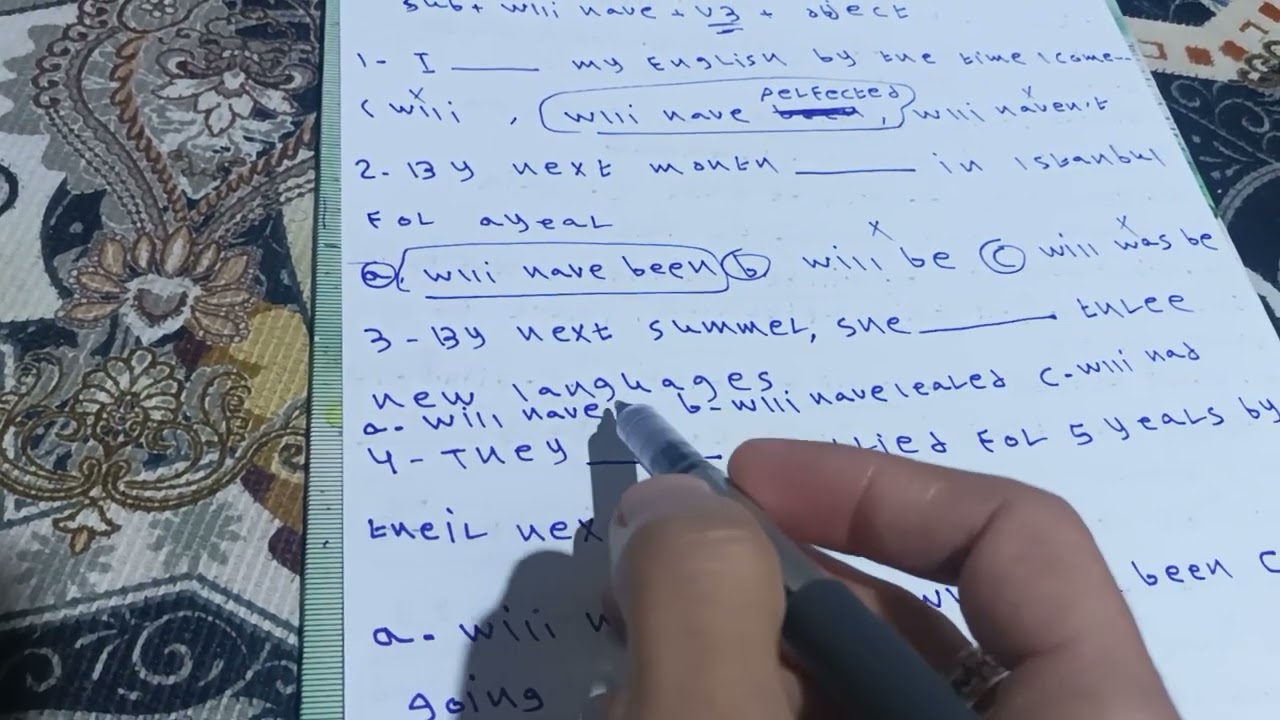 sub + will have + v3 + object
1- I ____ my English by the time I come--
( will , will have perfected , will haven't
2. By next month ____ in Istanbul
For a year
a. will have been b will be c will was be
3 - By next summer, she ____ three
new languages
a. will have b- will have learned c- will had
4 - They ____ For 5 years by
their
a. will been c
going